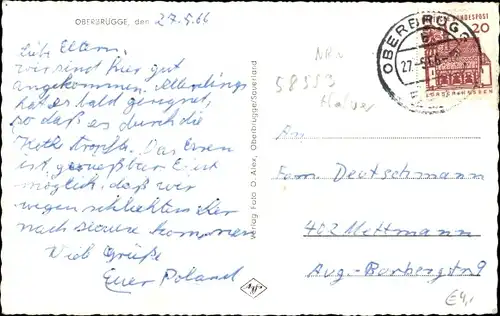 OBERBRÜGGE, den 27.5.66
Liebe Eltern,
wir sind hier gut
angekommen. Allerdings
hat es bald geregnet,
so daß es durch die
Kothe tropfte. Das Essen
ist genießbar. Es ist
möglich, daß wir
wegen schlechtem
nach Hause kommen
Viele Grüße
Euer Roland
Verlag Foto O. Alex, Oberbrügge/Sauerland
Agfa
OBERBRÜGGE
27.-5.66
BUNDESPOST
20
LORSCH · HESSEN
NRW
58553
Halver
An
Fam. Deutschmann
402 Mettmann
Aug.-Burberg str 9
€4,-